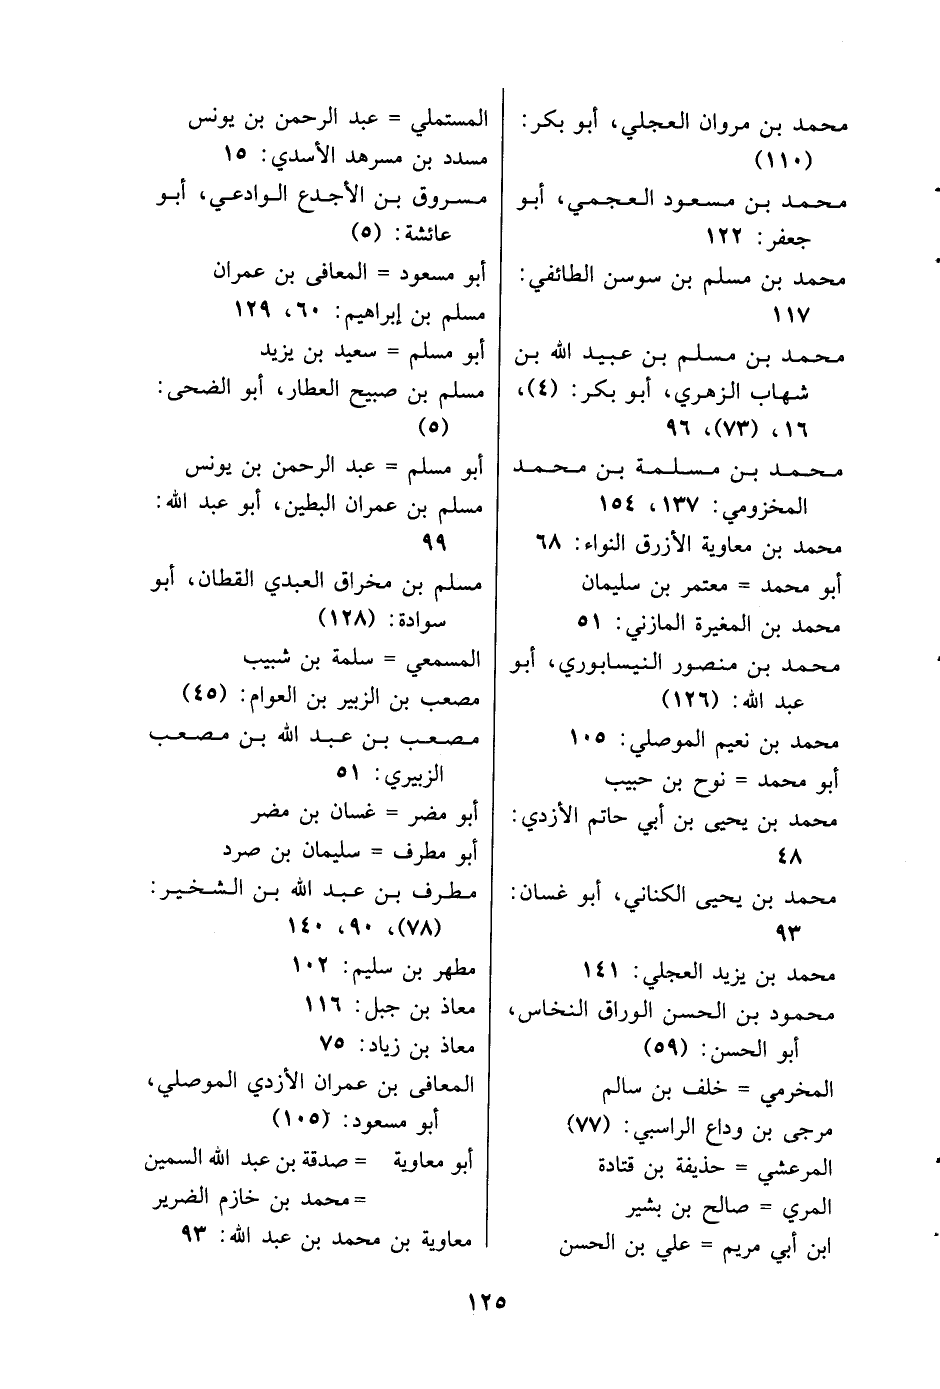 محمد بن مروان العجلي، أبو بكر:
(١١٠)
محمد بن مسعود العجمي، أبو
جعفر: ١٢٢
محمد بن مسلم بن سوسن الطائفي:
١١٧
محمد بن مسلم بن عبيد الله بن
شهاب الزهري، أبو بكر: (٤)،
١٦، (٧٣)، ٩٦
محمد بن مسلمة بن محمد
المخزومي: ١٣٧، ١٥٤
محمد بن معاوية الأزرق النواء: ٦٨
أبو محمد = معتمر بن سليمان
محمد بن المغيرة المازني: ٥١
محمد بن منصور النيسابوري، أبو
عبد الله: (١٢٦)
محمد بن نعيم الموصلي: ١٠٥
أبو محمد = نوح بن حبيب
محمد بن يحيى بن أبي حاتم الأزدي:
٤٨
محمد بن يحيى الكناني، أبو غسان:
٩٣
محمد بن يزيد العجلي: ١٤١
محمود بن الحسن الوراق النخاس،
أبو الحسن: (٥٩)
المخرمي = خلف بن سالم
مرجى بن وداع الراسبي: (٧٧)
المرعشي = حذيفة بن قتادة
المري = صالح بن بشير
ابن أبي مريم = علي بن الحسن
المستملي = عبد الرحمن بن يونس
مسدد بن مسرهد الأسدي: ١٥
مسروق بن الأجدع الوادعي، أبو
عائشة: (٥)
أبو مسعود = المعافى بن عمران
مسلم بن إبراهيم: ٦٠، ١٢٩
أبو مسلم = سعيد بن يزيد
مسلم بن صبيح العطار، أبو الضحى:
(٥)
أبو مسلم = عبد الرحمن بن يونس
مسلم بن عمران البطين، أبو عبد الله:
٩٩
مسلم بن مخراق العبدي القطان، أبو
سوادة: (١٢٨)
المسمعي = سلمة بن شبيب
مصعب بن الزبير بن العوام: (٤٥)
مصعب بن عبد الله بن مصعب
الزبيري: ٥١
أبو مضر = غسان بن مضر
أبو مطرف = سليمان بن صرد
مطرف بن عبد الله بن الشخير:
(٧٨)، ٩٠، ١٤٠
مطهر بن سليم: ١٠٢
معاذ بن جبل: ١١٦
معاذ بن زياد: ٧٥
المعافى بن عمران الأزدي الموصلي،
أبو مسعود: (١٠٥)
أبو معاوية = صدقة بن عبد الله السمين
= محمد بن خازم الضرير
معاوية بن محمد بن عبد الله: ٩٣
١٢٥